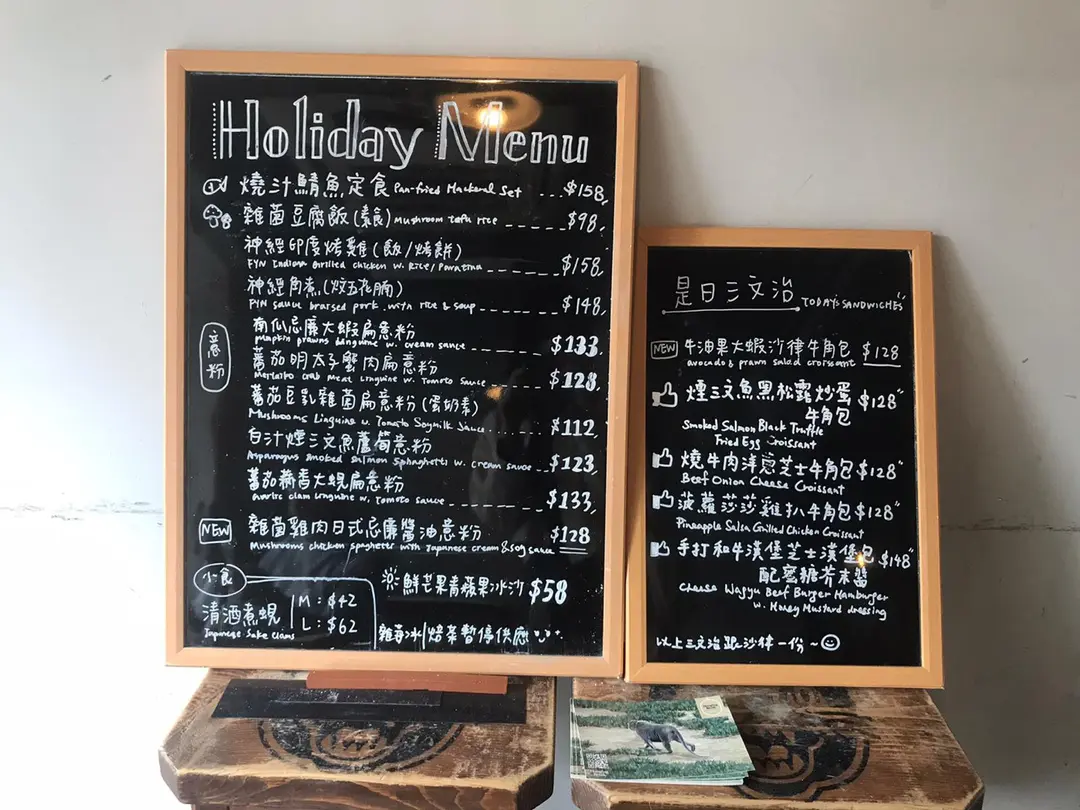 Holiday Menu
燒汁鯖魚定食 Pan-fried Mackeral Set $158
雜菌豆腐飯(素食) Mushroom tofu rice $98
神經印度烤雞(飯/烤餅)
FYN Indian Grilled chicken w. Rice/Paratina $158
神經角煮(炆五花腩)
FYN sauce brarsed pork with rice & soup $148
意粉
南瓜忌廉大蝦扁意粉
Pumpkin prawns linguine w. cream sauce $133
蕃茄明太子蟹肉扁意粉
Mentaiko Crab Meat Linguine w. Tomato Sauce $128
蕃茄豆乳雜菌扁意粉(蛋奶素)
Mushrooms Linguine w. Tomato Soymilk Sauce $112
白汁煙三文魚蘆荀意粉
Asparagus smoked salmon Sphaghetti w. cream sauce $123
蕃茄蒜香大蜆扁意粉
Garlic clam linguine w. Tomato sauce $133
NEW 雜菌雞肉日式忌廉醬油意粉 $128
Mushrooms chicken spaghetti with Japanese cream & soy sauce
小食
清酒煮蜆 M: $42
Japanese Sake Clams L: $62
※鮮芒果青蘋果冰沙 $58
雜莓冰/焙茶暫停供應
是日三文治 TODAY'S SANDWICHES
NEW 牛油果大蝦沙律牛角包 $128
avocado & prawn salad croissant
煙三文魚黑松露炒蛋 $128
牛角包
Smoked Salmon Black Truffle
Fried Egg Croissant
燒牛肉洋蔥芝士牛角包 $128
Beef Onion Cheese Croissant
菠蘿莎莎雞扒牛角包 $128
Pineapple Salsa Grilled Chicken Croissant
手打和牛漢堡芝士漢堡包 $148
配蜜糖芥末醬
Cheese Wagyu Beef Burger Hamburger
w. Honey Mustard dressing
以上三文治跟沙律一份~